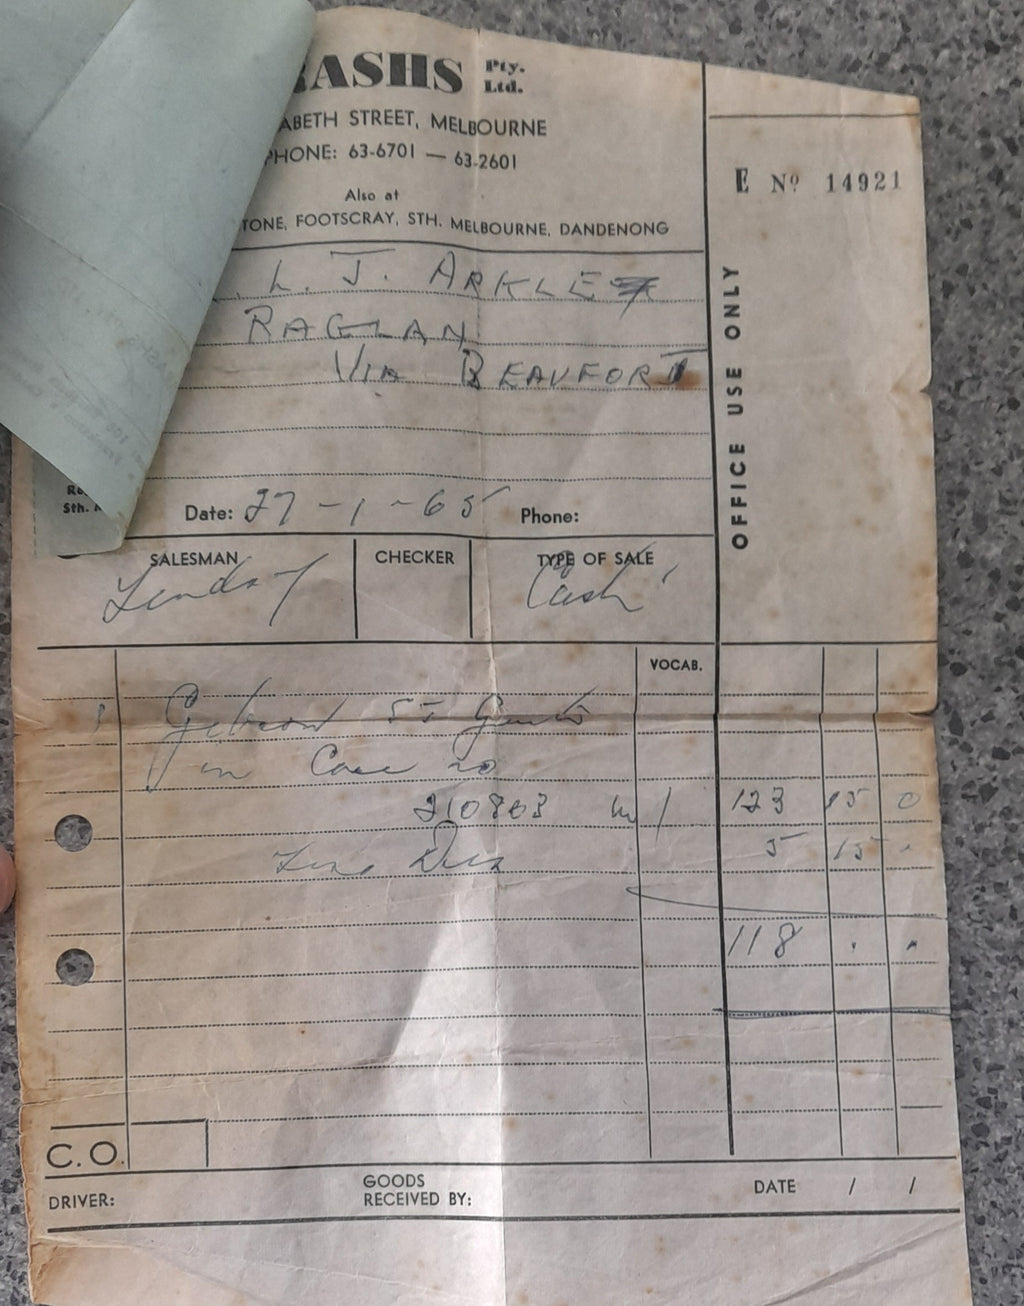 RASHS Pty. Ltd.
ABETH STREET, MELBOURNE
PHONE: 63-6701 — 63-2601
Also at
TONE, FOOTSCRAY, STH. MELBOURNE, DANDENONG
E Nº 14921
OFFICE USE ONLY
. L. J. ARKLE
RAGLAN
VIA BEAUFORT
Sth.
Date: 27-1-65 Phone:
SALESMAN CHECKER TYPE OF SALE
Lindsay Cash
VOCAB.
1 Gibson ST
in Case no
210863 123 15 0
Less 5 15 -
118 . .
C.O.
DRIVER: GOODS RECEIVED BY: DATE / /